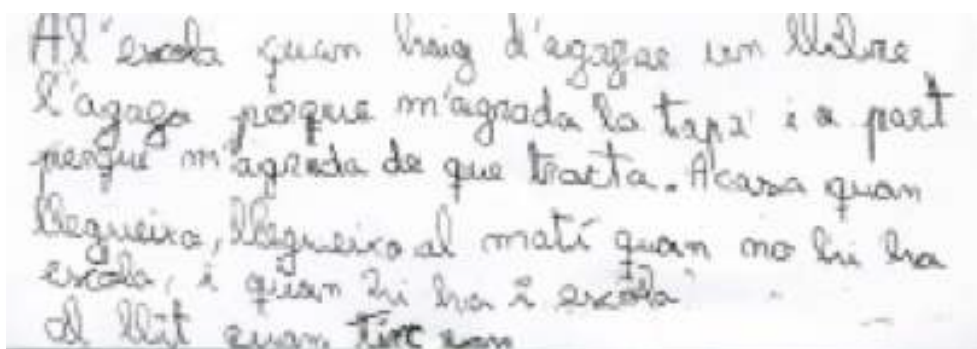 Al'escola quan haig d'agagae un llibre
l'agago porque m'agrada la tapa i a part
perque m'agrada de que tracta. Acasa quan
llegueixo, llegueixo al matí quan no hi ha
escola, i quan hi ha i escola
al llit quan tinc son